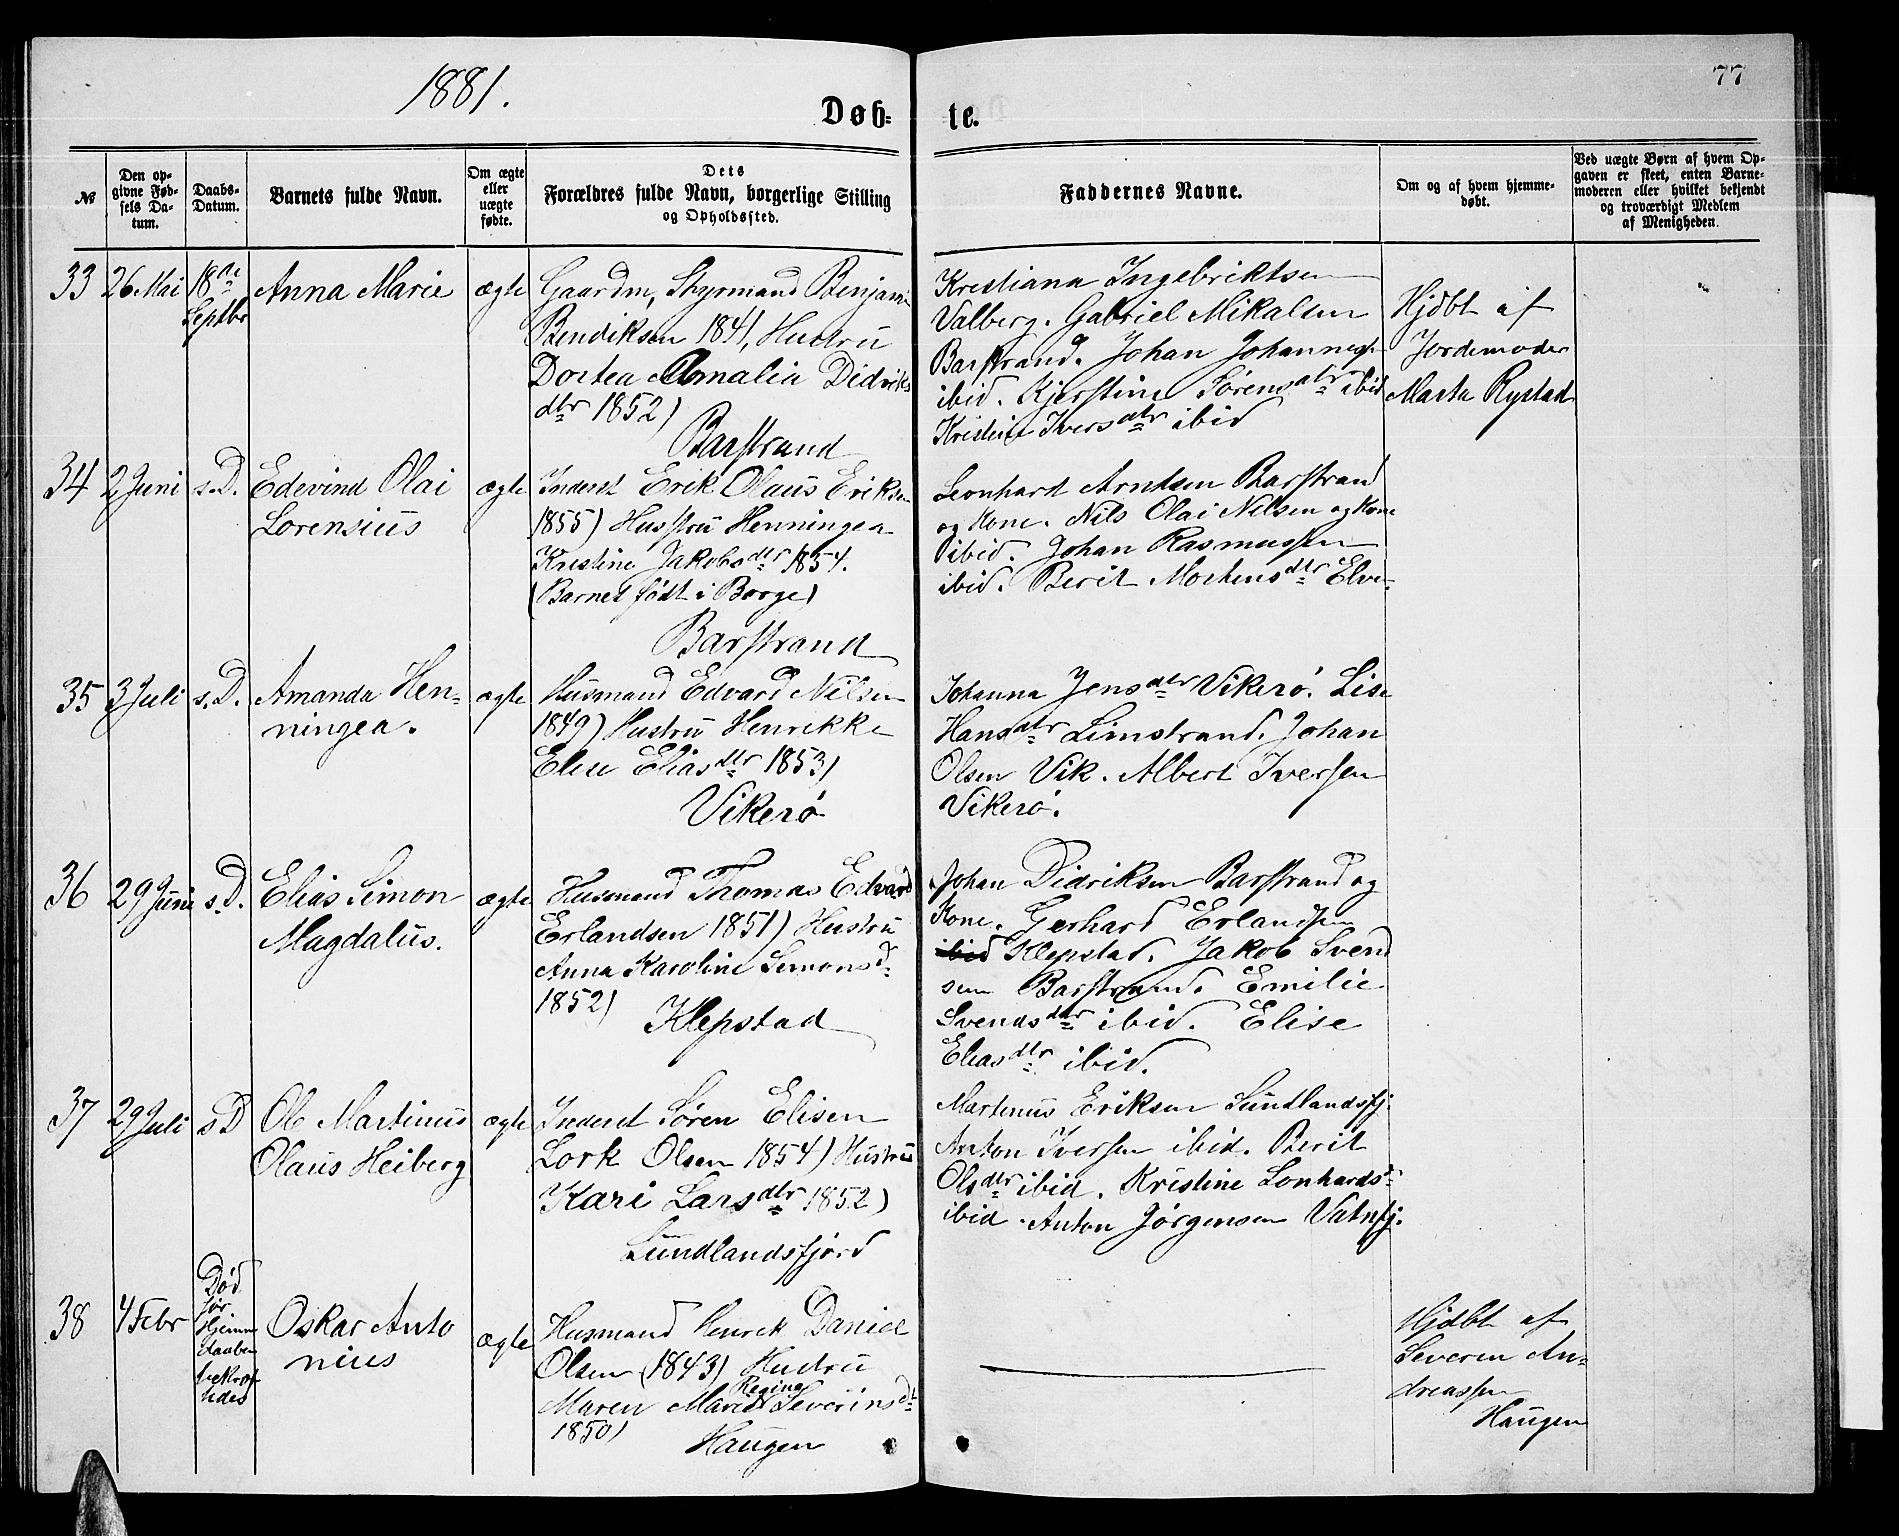 1881.
77
Døb-
te.
№
Den op-
givne Fød-
sels Da-
tum.
Daabs-
Datum.
Barnets fulde Navn.
Om ægte
eller
uægte
fødte.
Dets
Forældres fulde Navn, borgerlige Stilling
og Opholdssted.
Faddernes Navne.
Om og af hvem hjemme-
døbt.
Ved uægte Børn af hvem Op-
gaven er skeet, enten Barne-
moderen eller hvilket bekjendt
og troværdigt Medlem
af Menigheden.
33
26 Mai
18de
Septbr
Anna Marie
ægte
Gaardm, Styrmand Benjami
Bendiksen 1841, Hustru
Dortea Amalia Didriks
dtr 1852)
Barstrand
Kristiana Ingebriktsen
Valberg. Gabriel Mikalsen
Barstrand. Johan Johannes
ibid. Kjerstine Sørensdtr ibid
Kristine Iversdtr ibid
Hjdbt af
Jordemoder
Marta Rystad
34
2 Juni
s.D.
Edevind Olai
Lorensius
ægte
Inderst Erik Olaus Eriksen
1855) Husstru Henningea
Kristine Jakobsdtr 1854.
(Barnet født i Borge)
Barstrand
Leonhard Arntsen Barstrand
og Kone. Nils Olai Nilsen og Kone
ibid. Johan Rasmussen
ibid. Berit Mortensdtr Elve-
35
3 Juli
s.D.
Amanda Hen-
ningea.
ægte
Husmand Edvard Nilsen
1849) Hustru Henrikke
Elise Eliasdtr 1853)
Vikerø
Johanna Jensdtr Vikerø. Lise
Hansdtr Limstrand. Johan
Olsen Vik. Albert Iversen
Vikerø.
36
29 Juni
s.D.
Elias Simon
Magdalus.
ægte
Husmand Thomas Edvard
Erlandsen 1851) Hustru
Anna Karoline Simonsd
1852)
Klepstad
Johan Didriksen Barstrand og
Kone. Gerhard Erlandsen
ibid Klepstad. Jakob Svend
sen Barstrand. Emilie
Svendsdtr ibid. Elise
Eliasdtr ibid.
37
29 Juli
s D
Ole Martinus
Olaus Heiberg
ægte
Inderst Søren Elisen
Lork Olsen 1854) Hustru
Kari Larsdtr 1852)
Sundlandsfjord
Martinus Eriksen Sundlandsfj.
Anton Iversen ibid. Berit
Olsdtr ibid. Kristine Lonhardsd
ibid. Anton Jørgensen Vatnfj.
38
4 Febr
Død
før
Hjemme
daaben
bekræf
tedes
Oskar Anto
nius
ægte
Husmand Henrik Daniel
Olsen (1843) Hustru
Maren Marie Regine Severinsdt
1850)
Haugen
Hjdbt af
Severin An-
dreassen
Haugen